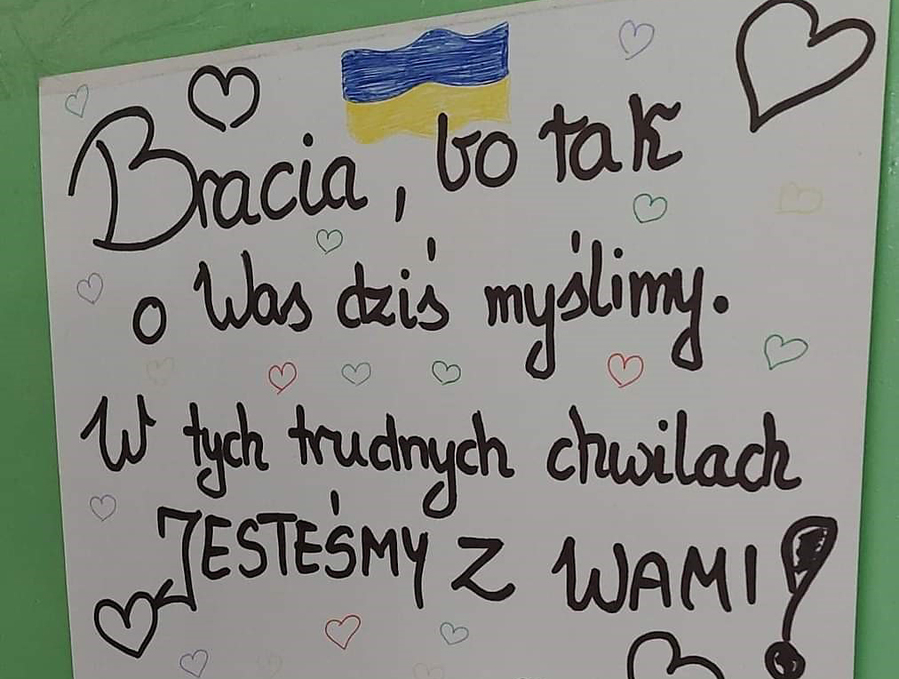 Bracia, bo tak
o Was dziś myślimy.
W tych trudnych chwilach
JESTEŚMY Z WAMI!